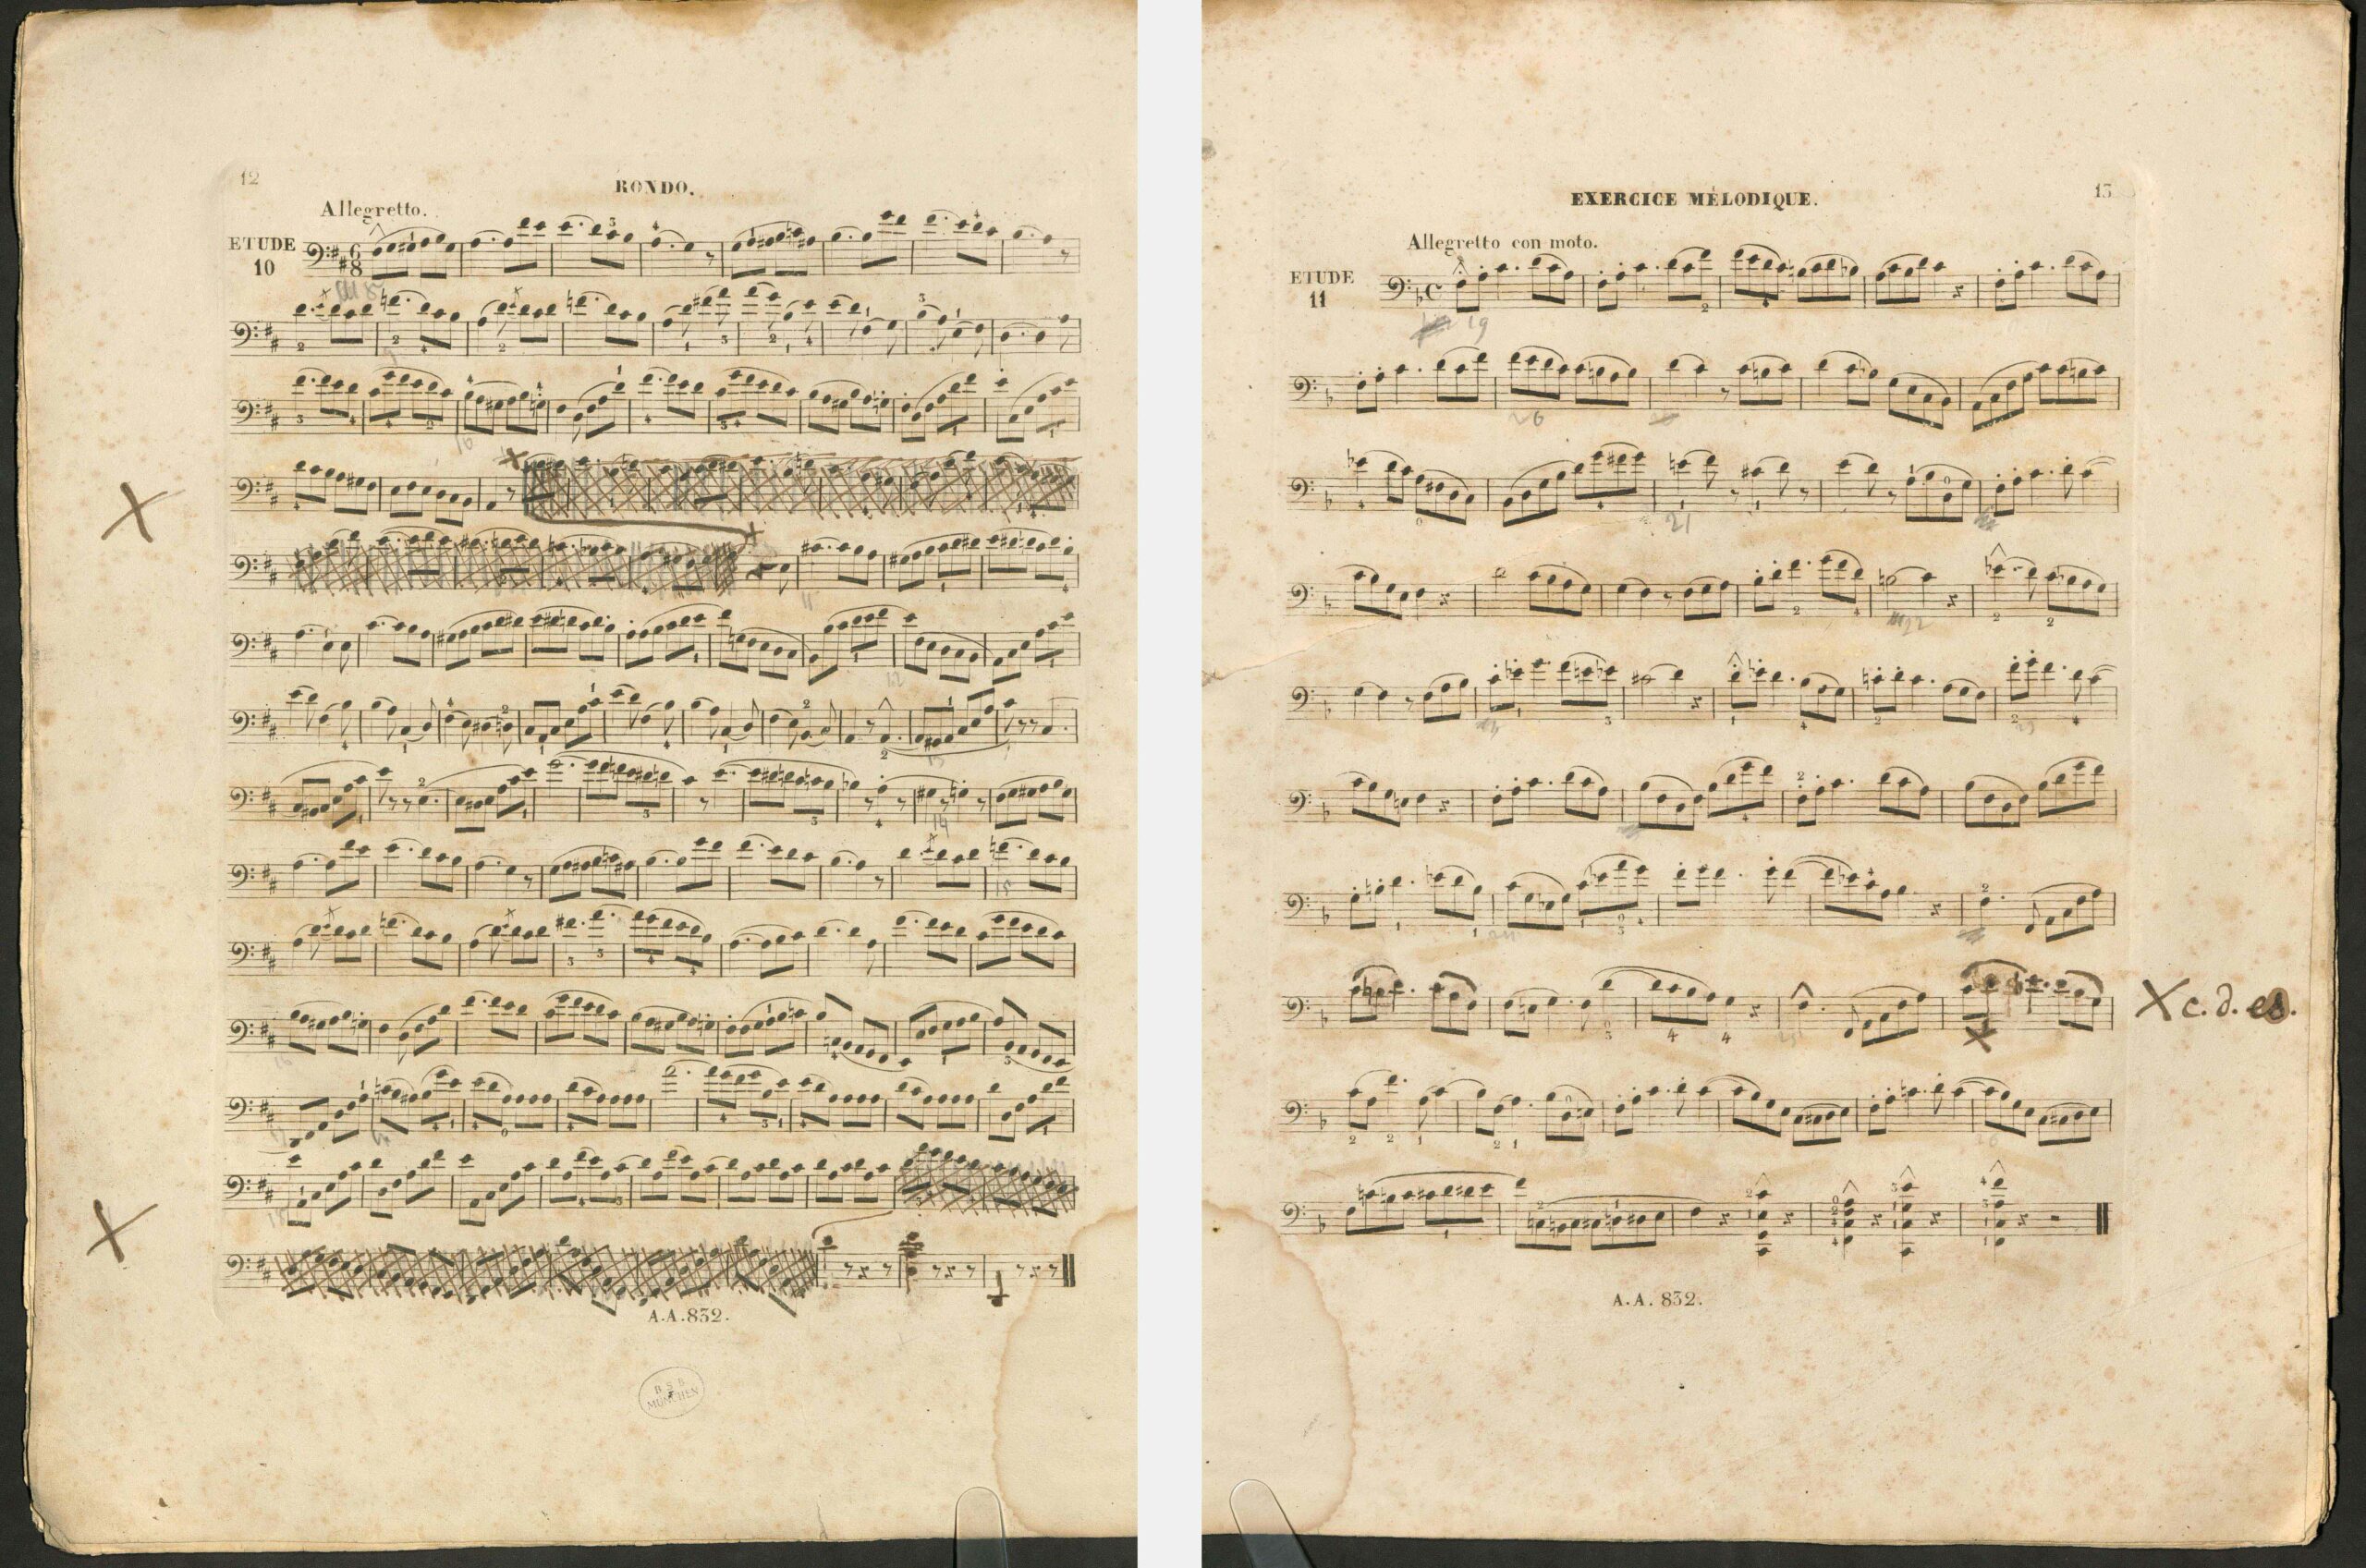 12
RONDO.
Allegretto.
ETUDE
10
A.A.832.
B S B
MÜNCHEN
EXERCICE MÉLODIQUE.
13
Allegretto con moto.
ETUDE
11
19
26
21
22
X c. d. es.
A.A. 832.